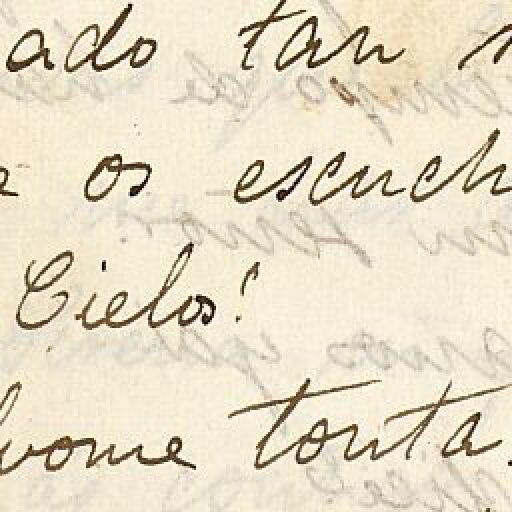 ado tan
os escuch
Cielos!
vome tonta